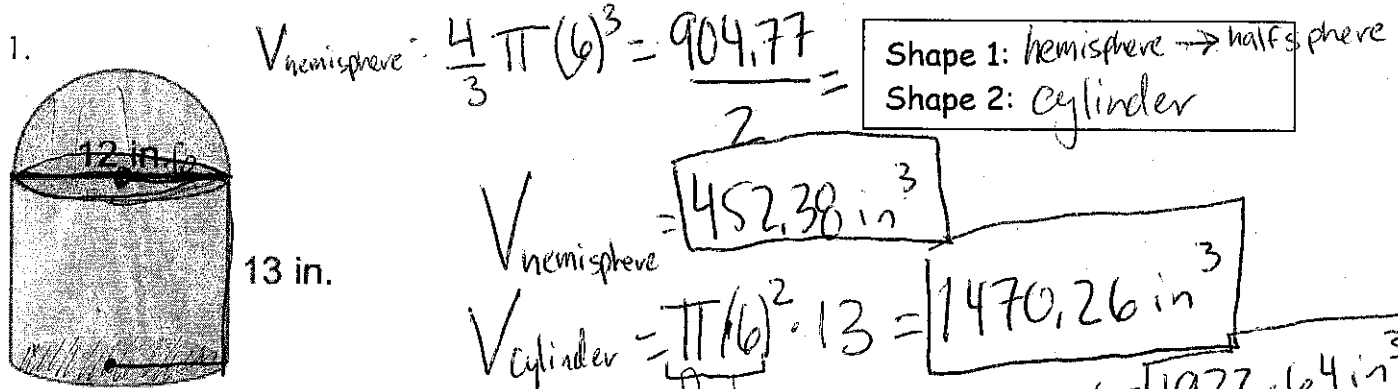 1.
V hemisphere = 4/3 π(6)³ = 904.77/2 =
Shape 1: hemisphere → half sphere
Shape 2: cylinder
12 in.
6
V hemisphere = 452.38 in³
13 in.
V cylinder = π(6)² · 13 = 1470.26 in³
1922.64 in³